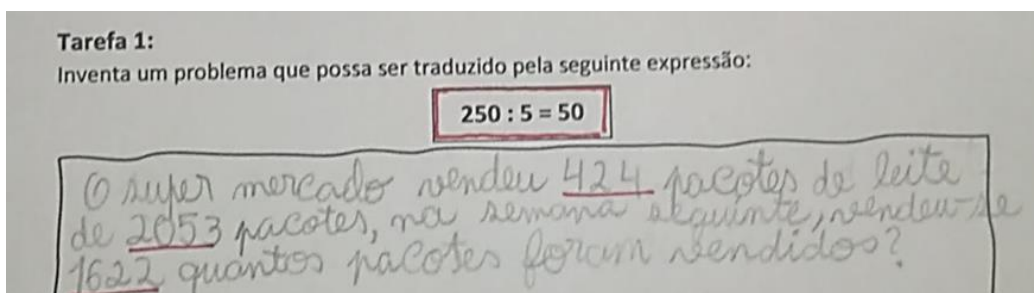 Tarefa 1:
Inventa um problema que possa ser traduzido pela seguinte expressão:
250 : 5 = 50
O super mercado vendeu 424 pacotes de leite
de 2053 pacotes, na semana seguinte, vendeu-se
1622 quantos pacotes foram vendidos?